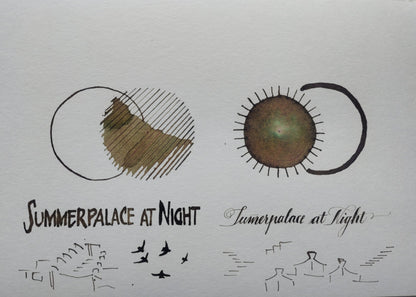 SUMMERPALACE AT NIGHT
Sumerpalace at Night